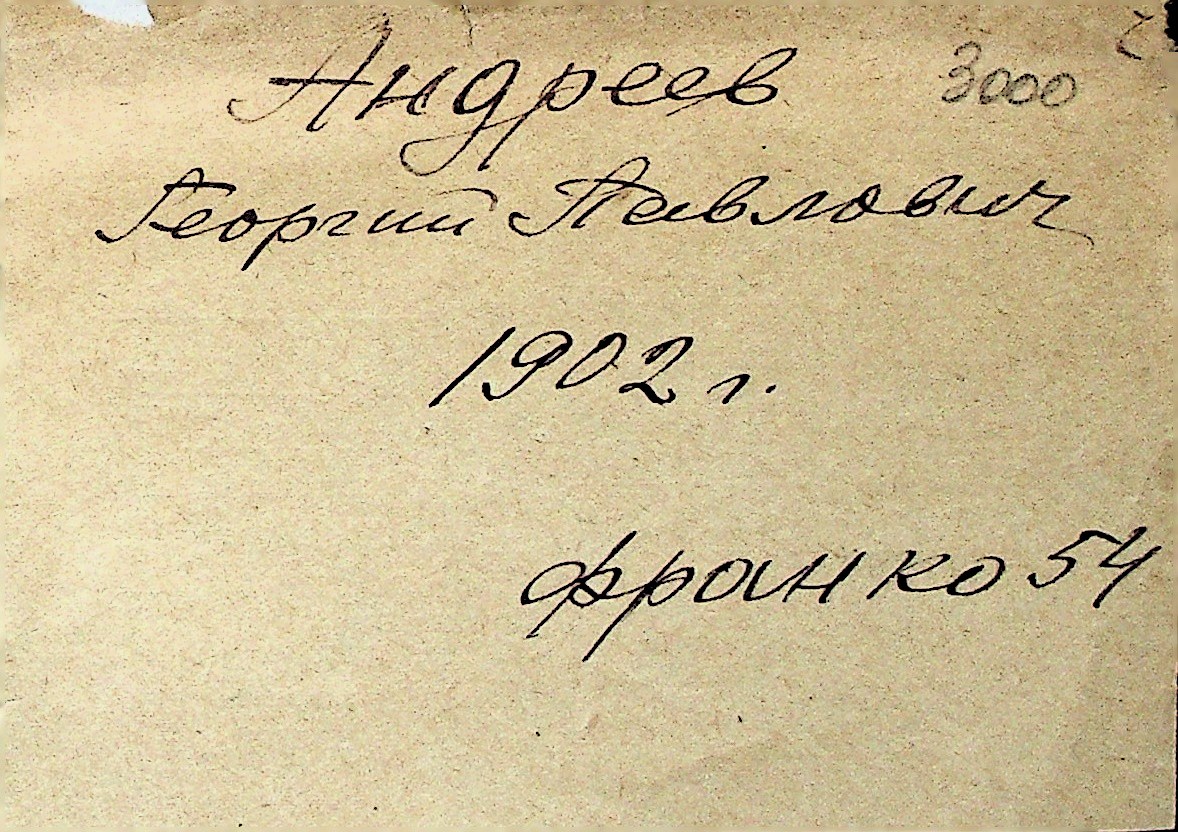 Андреев 3000
Георгий Павлович
1902 г.
франко 54